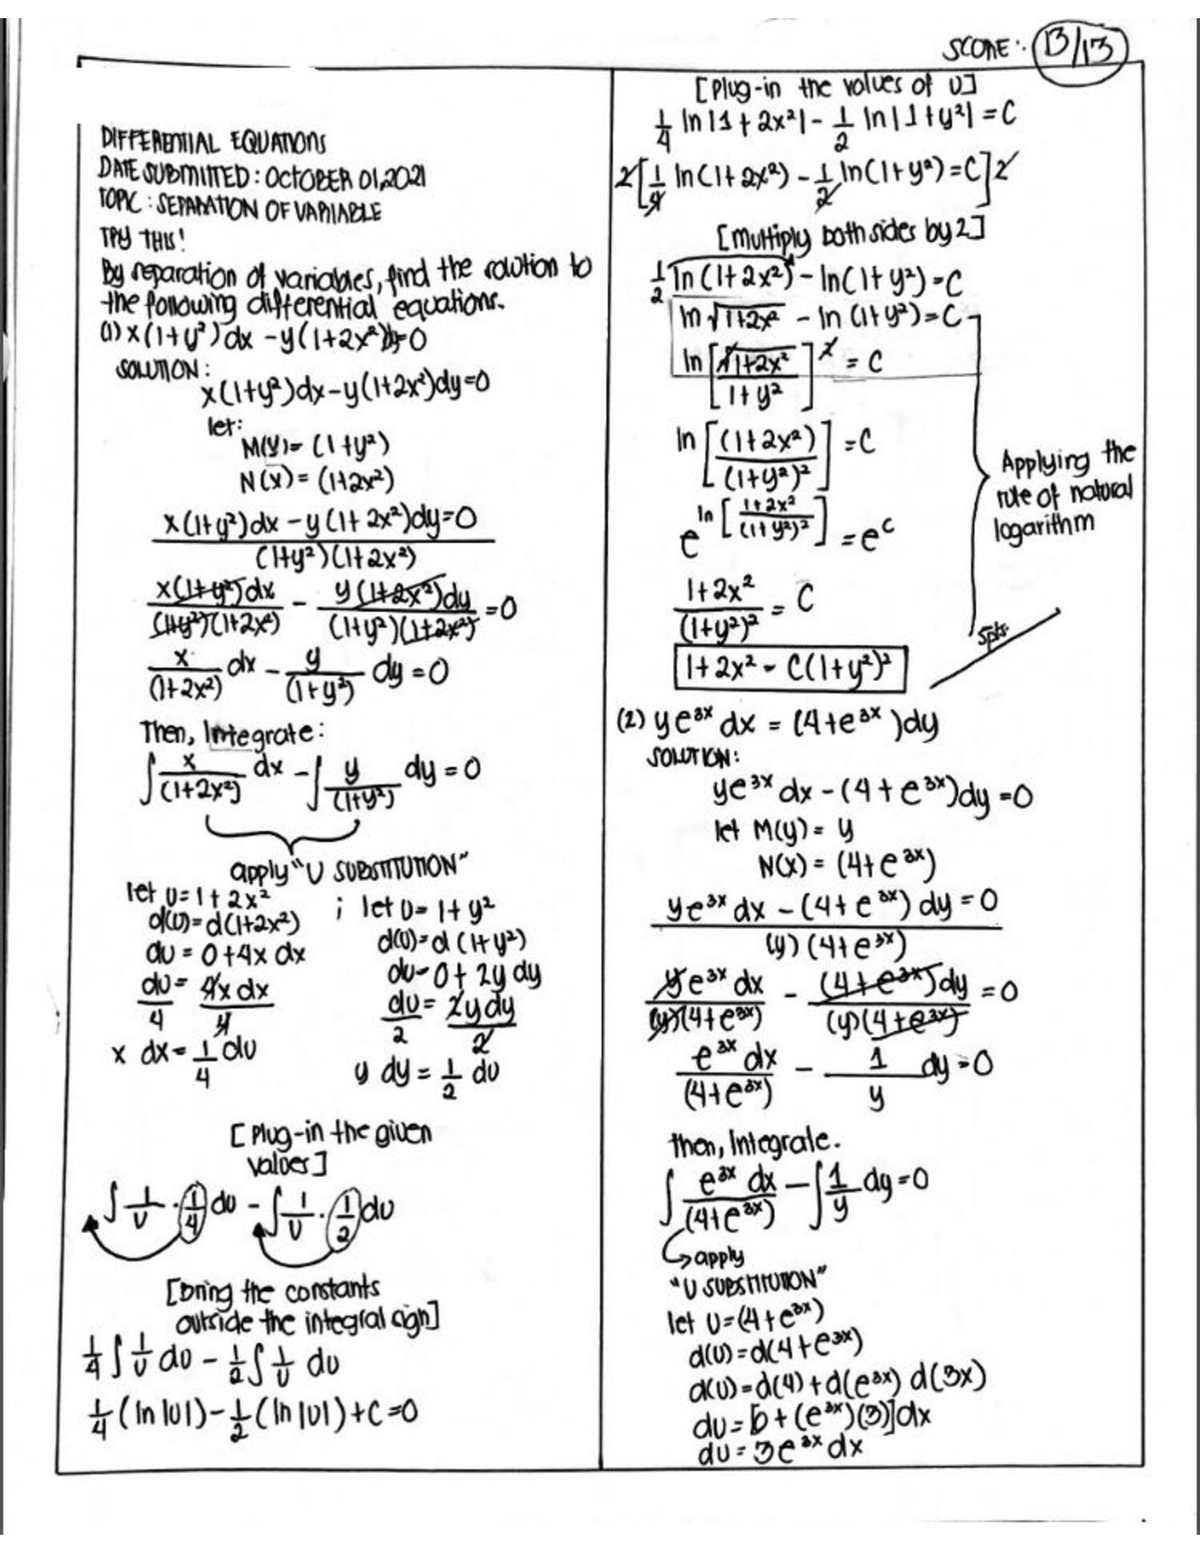 SCORE: 13/13
DIFFERENTIAL EQUATIONS
DATE SUBMITTED: OCTOBER 01, 2021
TOPIC: SEPARATION OF VARIABLE
TRY THIS!
By separation of variables, find the solution to
the following differential equations.
(1) x(1+y²)dx - y(1+2x²)dy=0
SOLUTION:
x(1+y²)dx - y(1+2x²)dy=0
let:
M(y)= (1+y²)
N(x)= (1+2x²)
x(1+y²)dx - y(1+2x²)dy=0
(1+y²)(1+2x²)
x(1+y²)dx - y(1+2x²)dy =0
(1+y²)(1+2x²) (1+y²)(1+2x²)
x dx - y dy = 0
(1+2x²) (1+y²)
Then, Integrate:
∫ x dx - ∫ y dy = 0
(1+2x²) (1+y²)
apply "U SUBSTITUTION"
let u=1+2x² ; let u= 1+y²
d(u)=d(1+2x²) d(u)=d(1+y²)
du = 0+4x dx du=0+2y dy
du = 4x dx du = 2y dy
4 4 2 2
x dx = 1/4 du y dy = 1/2 du
[Plug-in the given
values]
∫ 1/u · 1/4 du - ∫ 1/u · 1/2 du
[Bring the constants
outside the integral sign]
1/4 ∫ 1/u du - 1/2 ∫ 1/u du
1/4 (ln|u|) - 1/2 (ln|u|)+C=0
[Plug-in the values of U]
1/4 ln|1+2x²| - 1/2 ln|1+y²| = C
2[1/4 ln(1+2x²) - 1/2 ln(1+y²)=C]2
[Multiply both sides by 2]
1/2 ln(1+2x²) - ln(1+y²)=C
ln √1+2x² - ln(1+y²)=C
ln [√1+2x² / 1+y²]² = C
ln [(1+2x²) / (1+y²)²] = C
e^ln[1+2x² / (1+y²)²] = e^c
Applying the
rule of natural
logarithm
1+2x² / (1+y²)² = C
5pts.
1+2x² = C(1+y²)²
(2) ye³ˣ dx = (4+e³ˣ)dy
SOLUTION:
ye³ˣ dx - (4+e³ˣ)dy =0
let M(y)= y
N(x) = (4+e³ˣ)
ye³ˣ dx - (4+e³ˣ) dy = 0
(y)(4+e³ˣ)
ye³ˣ dx - (4+e³ˣ)dy = 0
(y)(4+e³ˣ) (y)(4+e³ˣ)
e³ˣ dx - 1 dy = 0
(4+e³ˣ) y
then, Integrate.
∫ e³ˣ dx - ∫ 1 dy=0
(4+e³ˣ) y
apply
"U SUBSTITUTION"
let u=(4+e³ˣ)
d(u)=d(4+e³ˣ)
d(u)=d(4)+d(e³ˣ) d(3x)
du = [0+(e³ˣ)(3)]dx
du = 3e³ˣ dx